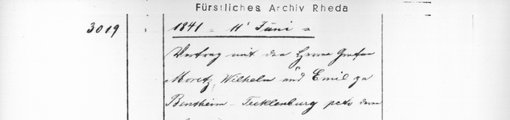 Fürstliches Archiv Rheda
3019 1841 11' Juni
Vertrag mit den Herren Grafen
Moritz, Wilhelm und Emil zu
Bentheim-Tecklenburg pcto deren